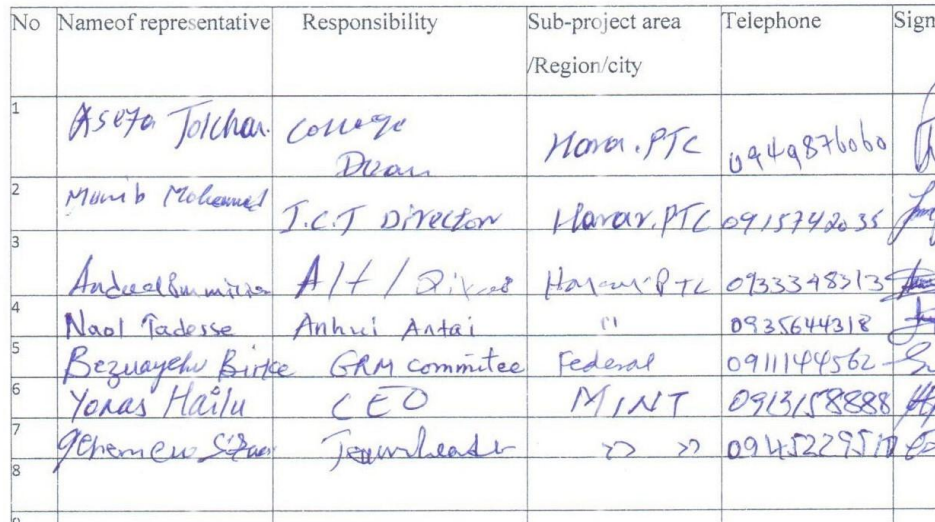 No Nameof representative Responsibility Sub-project area Telephone Sign
/Region/city
1 Asefa Tolchar. College Harar.PTC 0949876060
Dean
2 Munib Mohammed I.C.T Director Harar.PTC 0915742035
3 A/H/ Harar.PTC 0933348313
4 Naol Tadesse Anhui Antai " 0935644318
5 Bezuayehu Birke GRM commitee Federal 0911144562
6 Yonas Hailu CEO MINT 0913158888
7 Teamleader " "
8